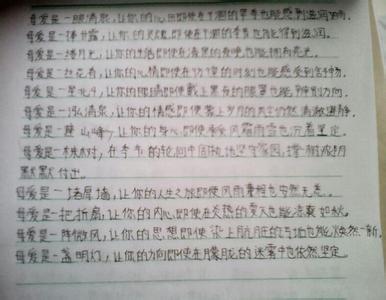 母爱是一眼清泉,让你的心田即使在干涸的季节也能感到滋润
母爱是一滴甘露,让你的即使在干涸的也能得到滋润。
母爱是一缕月光,让你的生活即使在漆黑的夜晚也能拥有亮光。
母爱是一丛花香,让你的心情即使在彷徨的时刻也能感受到
母爱是一星北斗,让你的眼睛即使戴上黑布的眼罩也能辨别方向。
母爱是一泓清泉,让你的情感即使蒙上岁月的风尘仍然清澈澄静。
母爱是一座山峰,让你的身心即使承受风霜雨雪也沉着坚定。
母爱是一株树,在季节的轮回中固执地坚守家园,撑树成荫
默默付出。
母爱是一堵厚墙,让你的人生之旅即使风雨兼程也安然无恙。
母爱是一把折扇,让你的内心即使在炎热的夏天也能凉爽如秋。
母爱是一阵微风,让你的思想即使染上肮脏的也能焕然一新。
母爱是一盏明灯,让你的方向即使在朦胧的迷雾中也依然坚定。